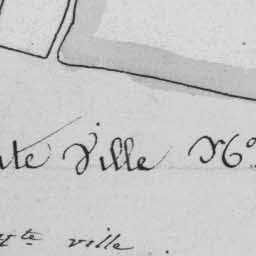 ute Ville N°
Hte ville